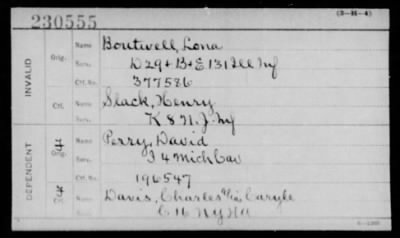 230555
(3-H-4)
INVALID
Orig. Name Boutwell, Lona
Serv. D 29 & B & E 131 Ill Inf
Ctf. No. 377586
Ctf. Name Slack, Henry
Serv. K 8 N.J. Inf
DEPENDENT
Orig. Name Perry, David
Serv. I 4 Mich Cav
Ctf. No. 196547
Ctf. Name Davis, Charles Caryle
Serv. C 16 NY HA